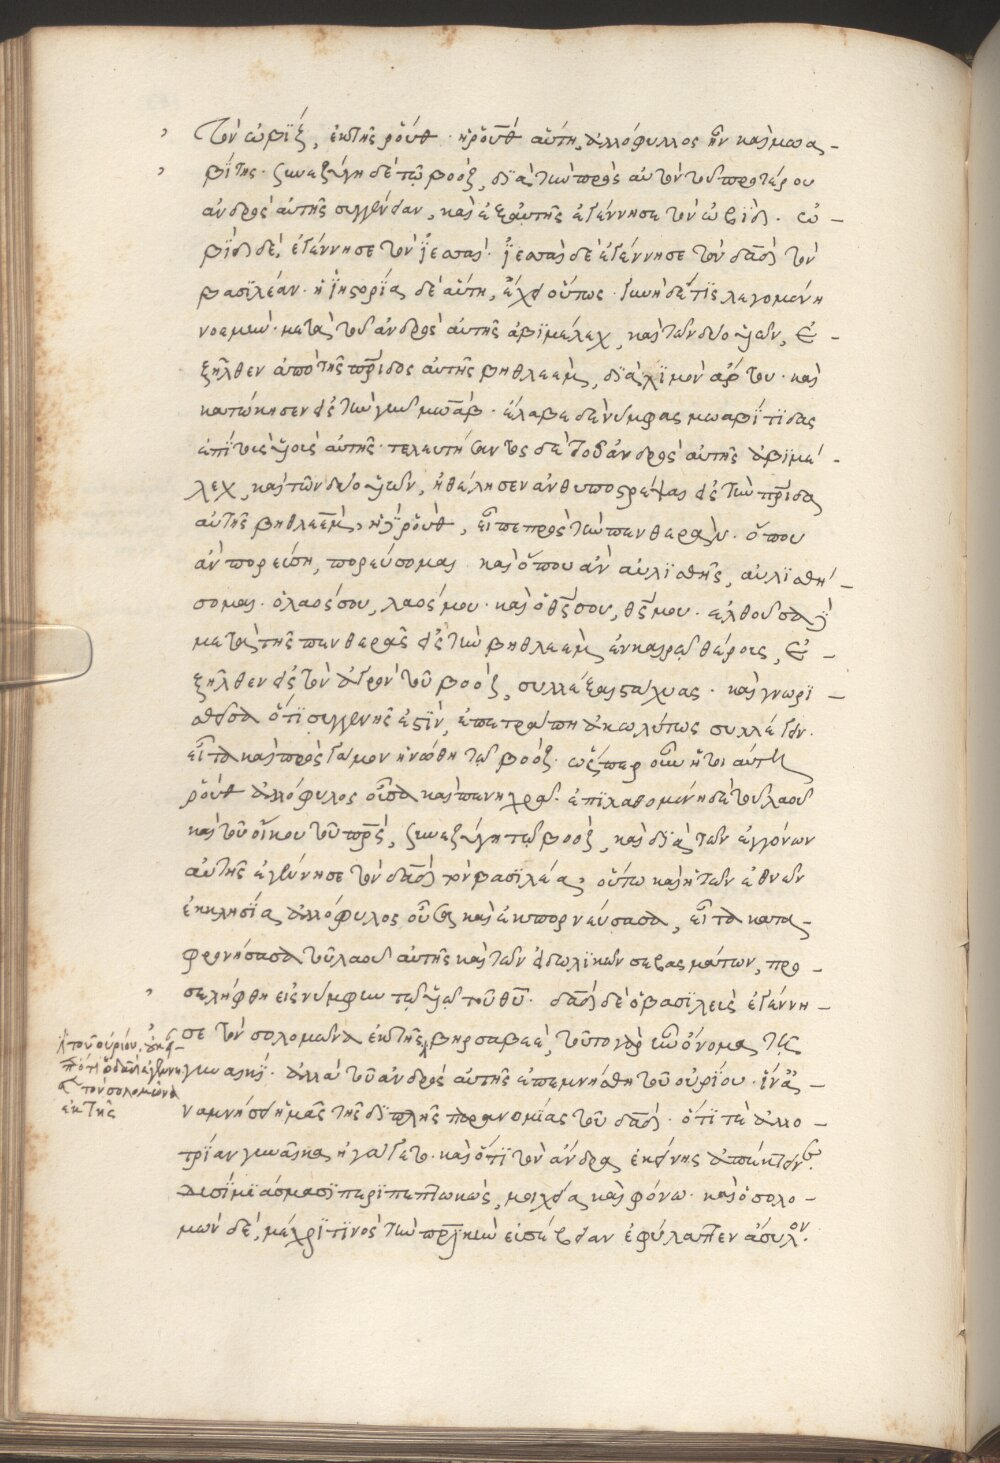 τὸν ὠβὶδ, ἐκ τῆς ῥούθ. ἡ ῥοῦθ αὕτη, ἀλλόφυλλος ἦν καὶ μωα-
βίτης. συνεζύγη δὲ τῷ βοὸζ, διὰ τὴν πρὸς αὐτὸν τοῦ προτέρου
ἀνδρὸς αὐτῆς συγγένειαν, καὶ ἐξ αὐτῆς ἐγέννησε τὸν ὠβίδ. ὠ-
βὶδ δὲ, ἐγέννησε τὸν ἰεσσαί. ἰεσσαὶ δὲ ἐγέννησε τὸν δαδ τὸν
βασιλέαν. ἡ ἱστορία δὲ αὕτη, ἔχει οὕτως. γυνὴ δέ τις λεγομένη
νοεμὶν. μετὰ τοῦ ἀνδρὸς αὐτῆς ἀβιμέλεχ, καὶ τῶν δύο υἱῶν, ἐ-
ξῆλθεν ἀπὸ τῆς πρίδος αὐτῆς βηθλεὲμ, διὰ λιμὸν ἄρτου. καὶ
κατώκησεν εἰς τὴν γῆν μωὰβ. ἔλαβε δὲ νύμφας μωαβίτιδας
ἐπὶ τοῖς υἱοῖς αὐτῆς. τελευτήσαντος δὲ τοῦ ἀνδρὸς αὐτῆς ἀβιμέ-
λεχ, καὶ τῶν δύο υἱῶν, ἠθέλησεν ἀνθυποστρέψαι εἰς τὴν πρίδα
αὐτῆς βηθλεὲμ, ἡ ῥοὺθ, εἶπε πρὸς τὴν πενθερὰν. ὅπου
ἂν πορεύση, πορεύσομαι. καὶ ὅπου ἂν αὐλισθῆς, αὐλισθή-
σομαι. ὁ λαός σου, λαός μου. καὶ ὁ θς σου, θς μου. ἐλθοῦσα
μετὰ τῆς πενθερᾶς εἰς τὴν βηθλεὲμ ἐν καιρῷ θέρους, ἐ-
ξῆλθεν εἰς τὸν ἀγρὸν τοῦ βοὸζ, συλλέξαι στάχυας. καὶ γνωρι-
σθεῖσα ὅτι συγγενής ἐστὶν, ἐπετράπη ἀκωλύτως συλλέγειν.
εἶτα καὶ πρὸς γάμον ἡνώθη τῷ βοόζ. ὥσπερ οὖν αὐτὴ
ῥοὺθ ἀλλόφυλος οὖσα καὶ πενιχρά. ἐπιλαθομένη δὲ τοῦ λαοῦ
καὶ τοῦ οἴκου τοῦ πρς, συνεζύγη τῷ βοὸζ, καὶ διὰ τῶν ἐγγόνων
αὐτῆς ἐγέννησε τὸν δαδ τὸν βασιλέα, οὕτω καὶ ἡ τῶν ἐθνῶν
ἐκκλησία ἀλλόφυλος οὖσα καὶ ἐκπορνεύσασα, εἶτα κατα-
φρονήσασα τοῦ λαοῦ αὐτῆς καὶ τῶν εἰδωλικῶν σεβασμάτων, προ-
σελήφθη εἰς νύμφην τῷ υἱῷ τοῦ θυ. δαδ δὲ ὁ βασιλεὺς ἐγέννη-
σε τὸν σολομῶνα ἐκ τῆς βηρσαβεὲ, τοῦτο γὰρ ἦν ὄνομα τῆς
γυναικί. ἀλλὰ τοῦ ἀνδρὸς αὐτῆς ἐπεμνήσθη τοῦ οὐρίου. ἵνα ἀ-
ναμνήση ἡμᾶς τῆς διπλῆς παρανομίας τοῦ δαδ. ὅτι τὲ ἀλλο-
τρίαν γυναῖκα ἠγάγετο. καὶ ὅτι τὸν ἄνδρα ἐκείνης ἀπέκτεινε.
περιπεπτωκὼς, μοιχεία καὶ φόνω. καὶ ὁ σολο-
μὼν δὲ, μέχρι τινὸς τὴν πρικὴν εὐσέβειαν ἐφύλαττεν ἄσυλον.
τοῦ οὐρίου. οὐκ εἶ-
πε ὅτι ὁ δαδ ἐγέννησε
τὸν σολομῶνα
ἐκ τῆς